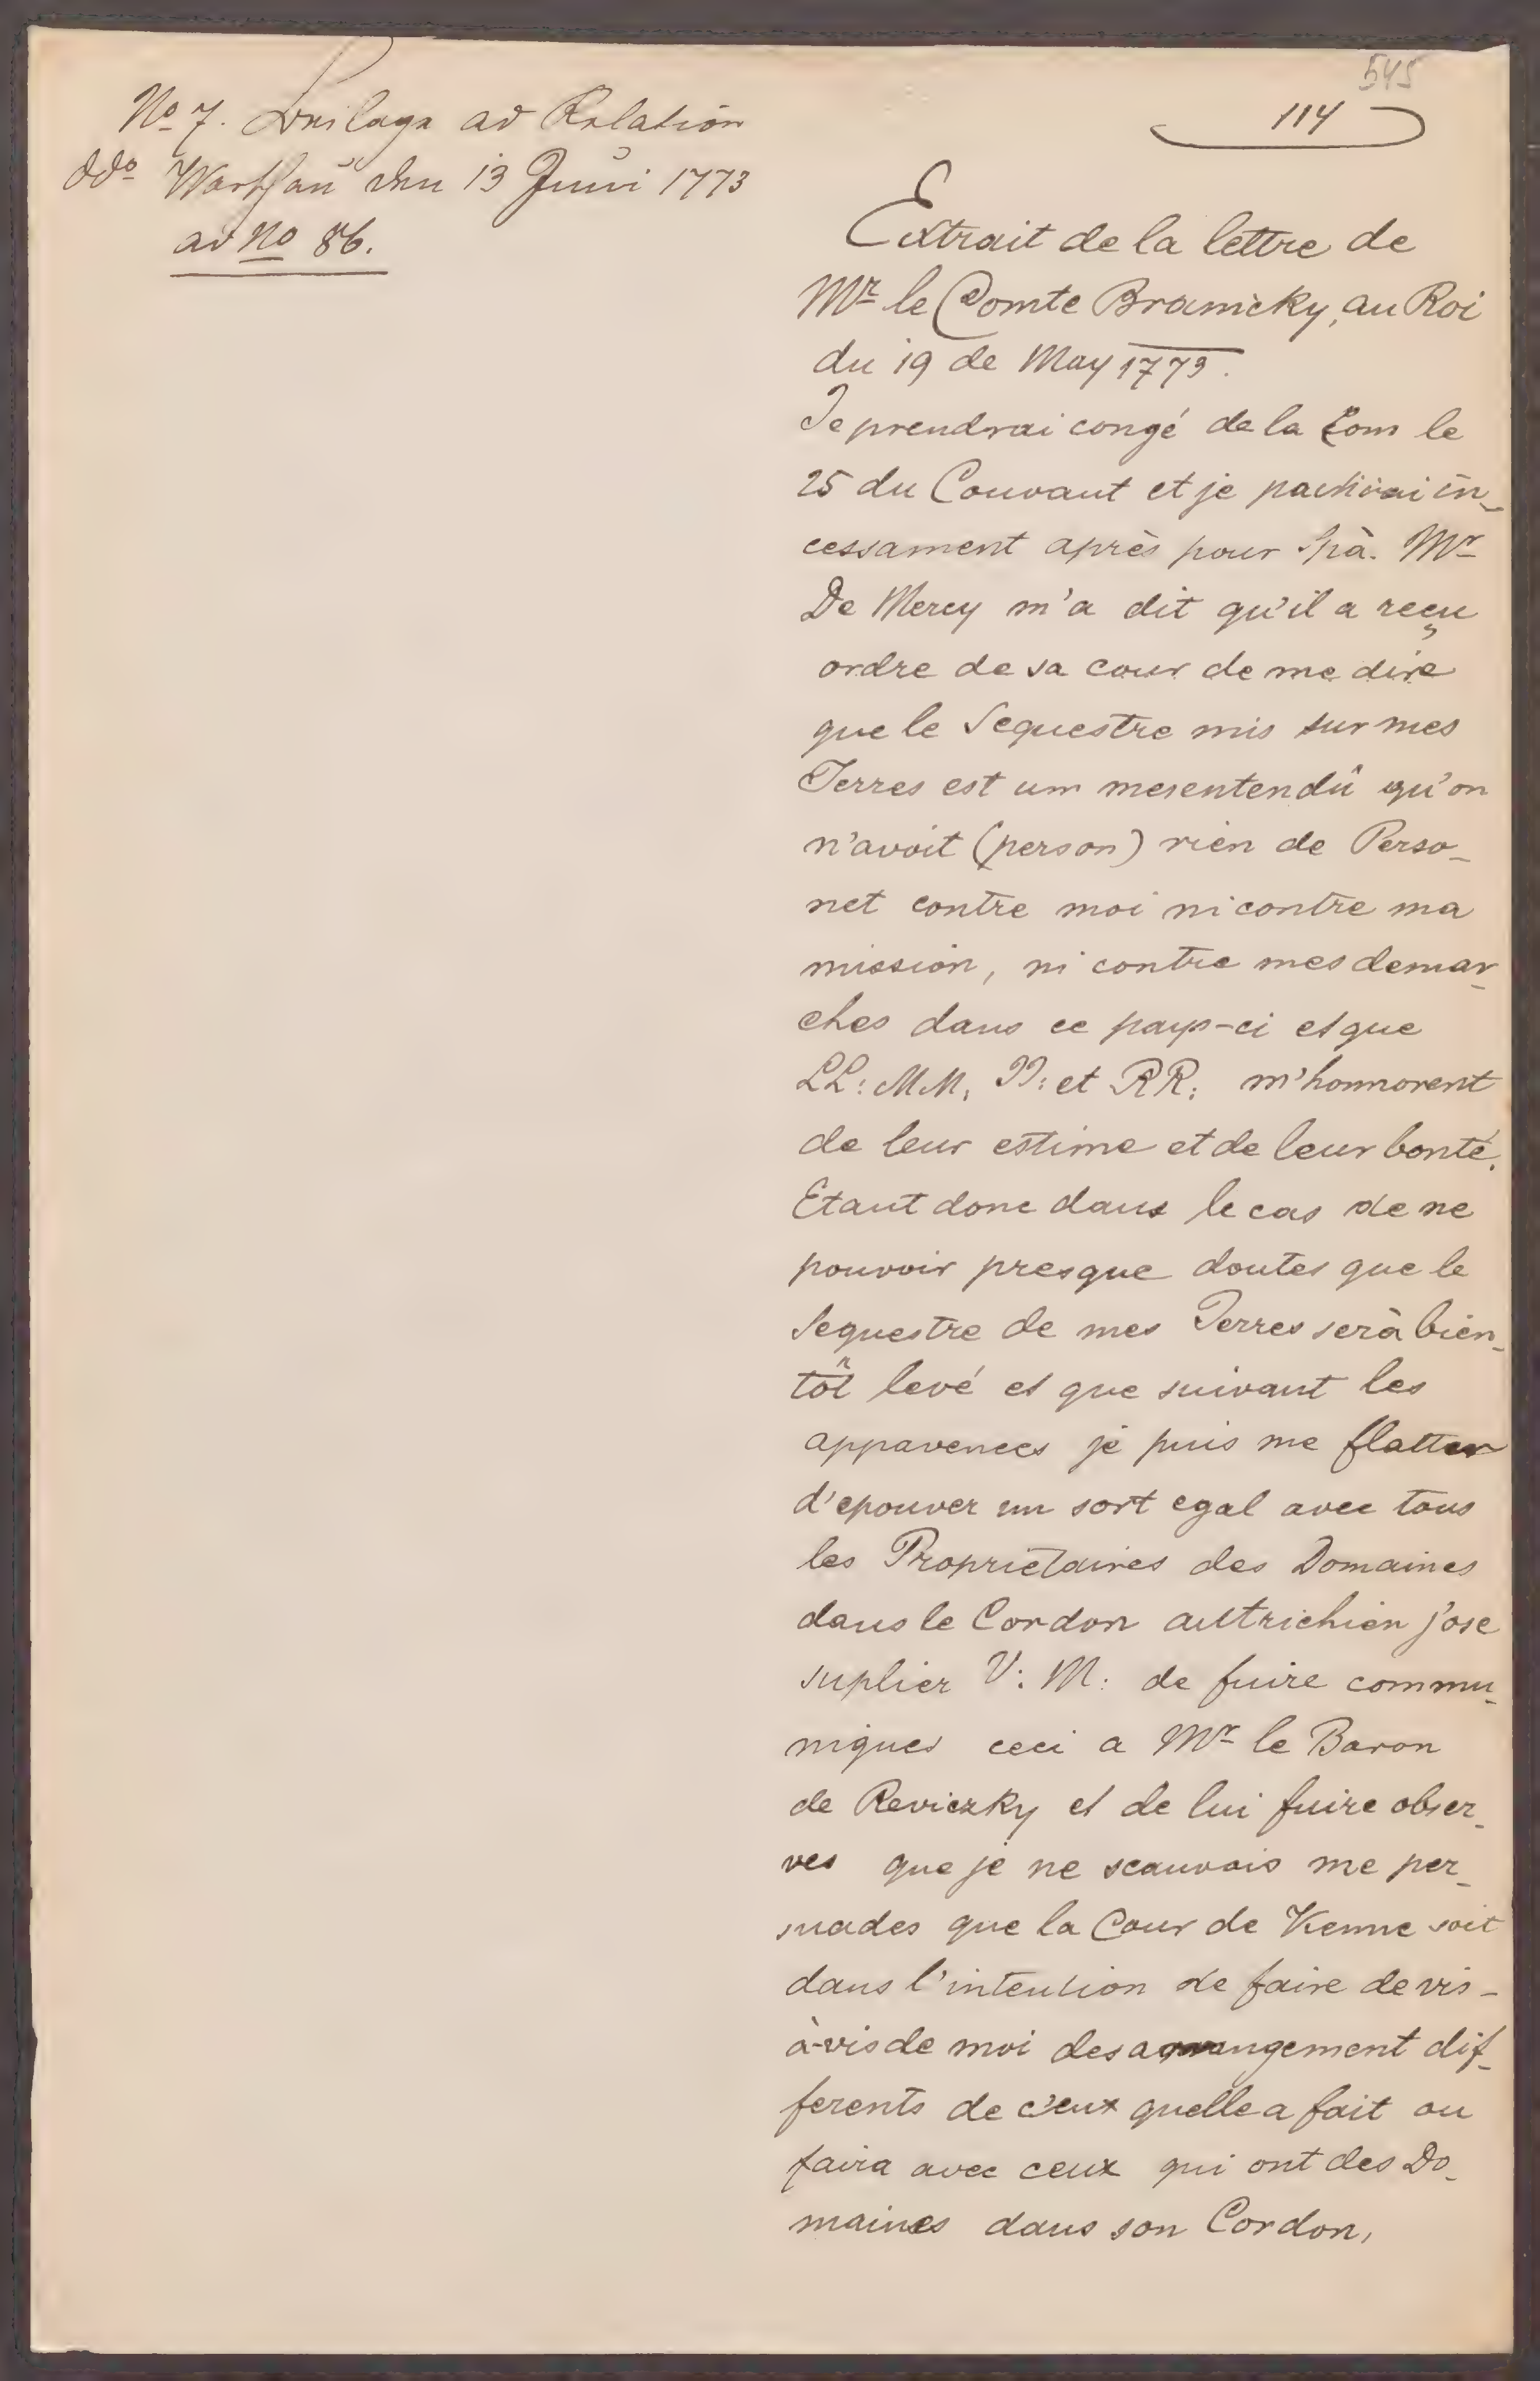 No 7. Beilage ad Relation
ddo Warschau den 13 Juni 1773
ad No 86.
545
114
Extrait de la lettre de
Mr le Comte Branicky, au Roi
du 19 de May 1773.
Je prendrai congé de la Cour le
25 du Courant et je partirai in-
cessament après pour Spà. Mr
De Mercy m'a dit qu'il a reçu
ordre de sa cour de me dire
que le Sequestre mis sur mes
Terres est um mesentendû qu'on
n'avoit (person) rien de Perso-
nel contre moi ni contre ma
mission, ni contre mes demar-
ches dans ce pays-ci et que
LL: MM, II: et RR: m'honnorent
de leur estime et de leur bonté.
Etant donc dans le cas de ne
pouvoir presque douter que le
Sequestre de mes Terres serà bien-
tôt levé et que suivant les
apparences je puis me flatter
d'epouver un sort egal avec tous
les Proprietaires des Domaines
dans le Cordon autrichien j'ose
suplier V: M: de faire commu-
niquer ceci a Mr le Baron
de Reviczky et de lui faire obser-
ver que je ne scaurais me per-
suader que la Cour de Vienne soit
dans l'intention de faire de vis-
à-vis de moi des arrangement dif-
ferents de ceux quelle a fait ou
faira avec ceux qui ont des Do-
maines dans son Cordon,